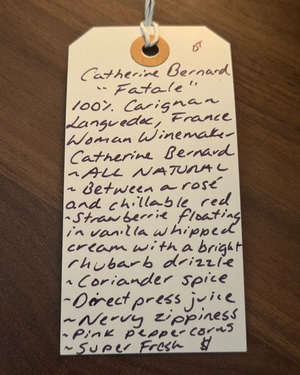 Catherine Bernard
"Fatale"
100% Carignan
Languedoc, France
Woman Winemaker
Catherine Bernard
~ ALL NATURAL
~ Between a rosé
and chillable red
~Strawberrie floating
in vanilla whipped
cream with a bright
rhubarb drizzle
~ Coriander spice
~Direct press juice
~ Nervy zippiness
~Pink peppercorns
~ Super Fresh